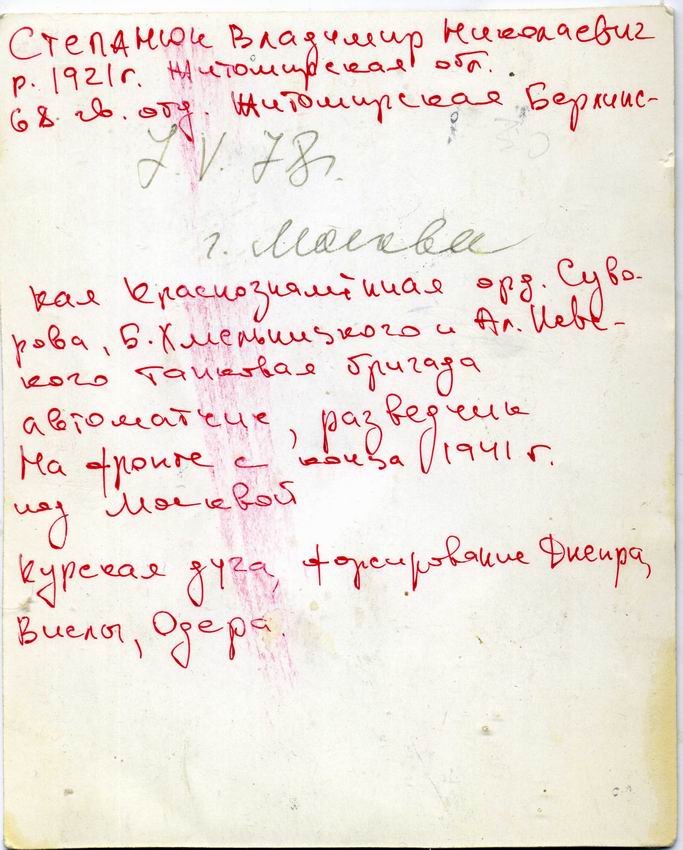 СТЕПАНЮК Владимир Николаевич
р. 1921 г. Житомирская обл.
68 гв. отд. Житомирская Берлинс-
7.V.78г.
г. Москва
кая Краснознамённая орд. Суво-
рова, Б.Хмельницкого и Ал. Невс-
кого танковая бригада
автоматчик, разведчик
На фронте с конца 1941 г.
под Москвой
Курская дуга, форсирование Днепра,
Вислы, Одера.